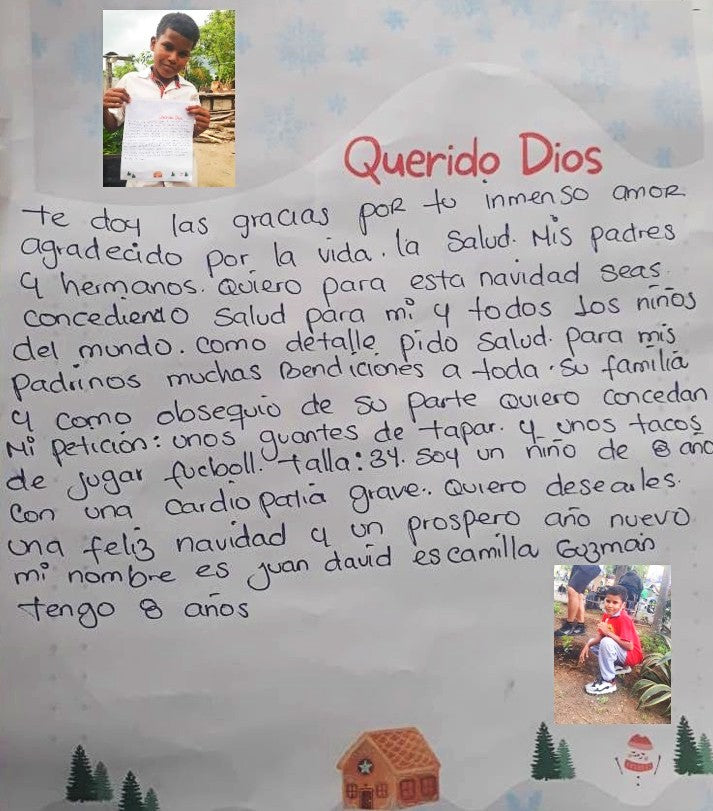 Querido Dios
te doy las gracias por tu inmenso amor
agradecido por la vida. la Salud. Mis padres
y hermanos. Quiero para esta navidad seas.
concediendo Salud para mi y todos los niños
del mundo. como detalle pido Salud. para mis
padrinos muchas Bendiciones a toda. su familia
y como obsequio de su parte Quiero concedan
Mi petición: unos guantes de tapar. y unos tacos
de jugar fucboll. talla: 34. Soy un niño de 8 año
Con una cardiopatia grave.. Quiero desearles.
una feliz navidad y un prospero año nuevo
mi nombre es juan david escamilla Guzman
tengo 8 años